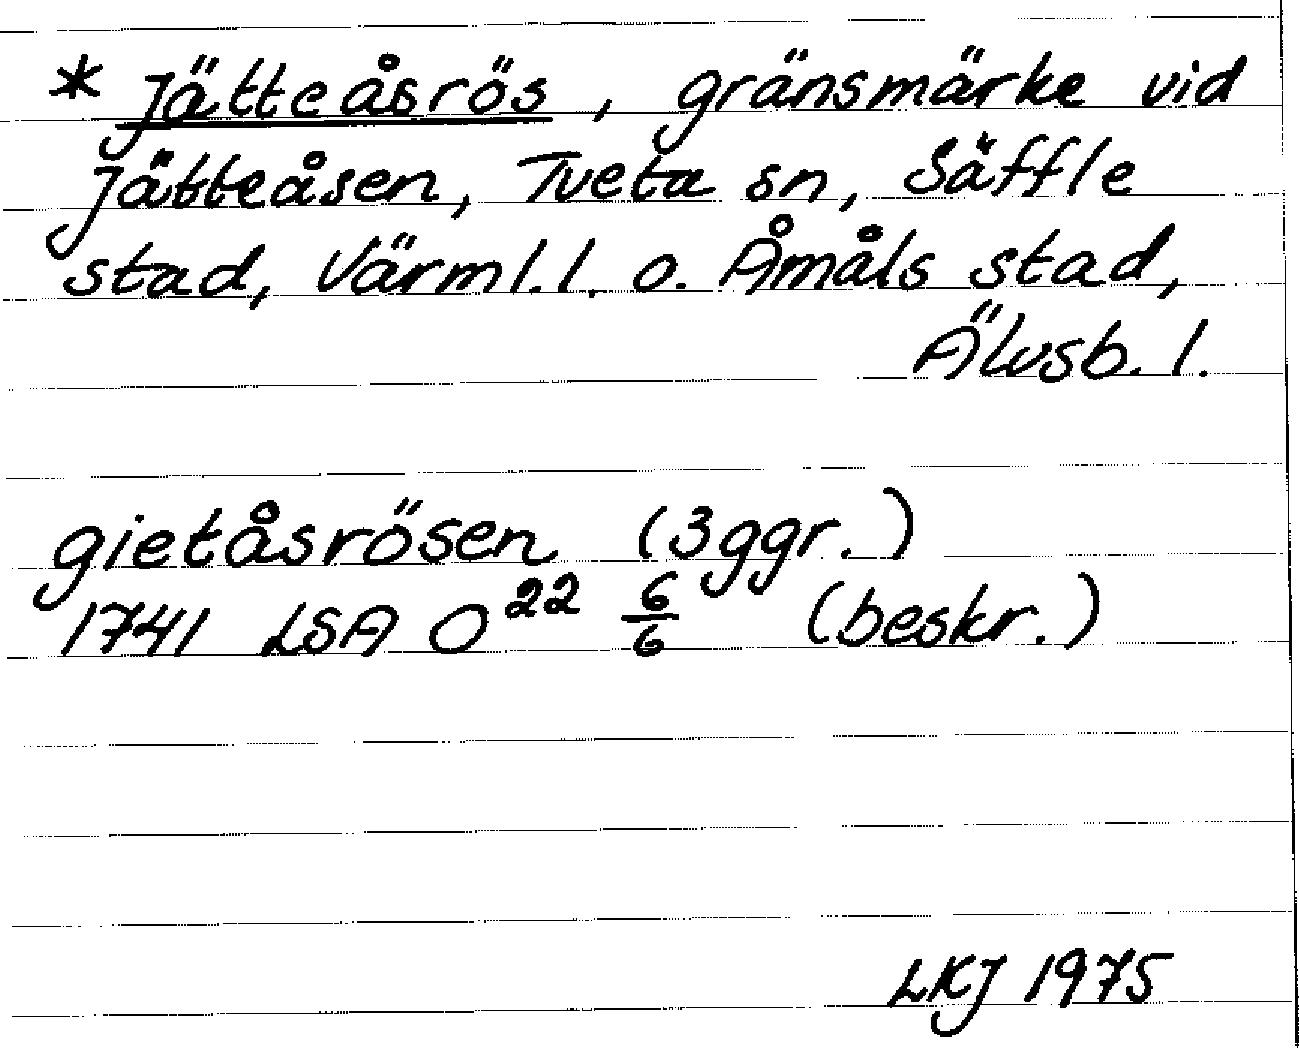 * Jätteåsrös, gränsmärke vid
Jätteåsen, Tveta sn, Säffle
stad, Värml. l. o. Åmåls stad,
Älvsb. l.
gietåsrösen (3 ggr.)
1741 LSA O²² 6/6 (beskr.)
LKJ 1975